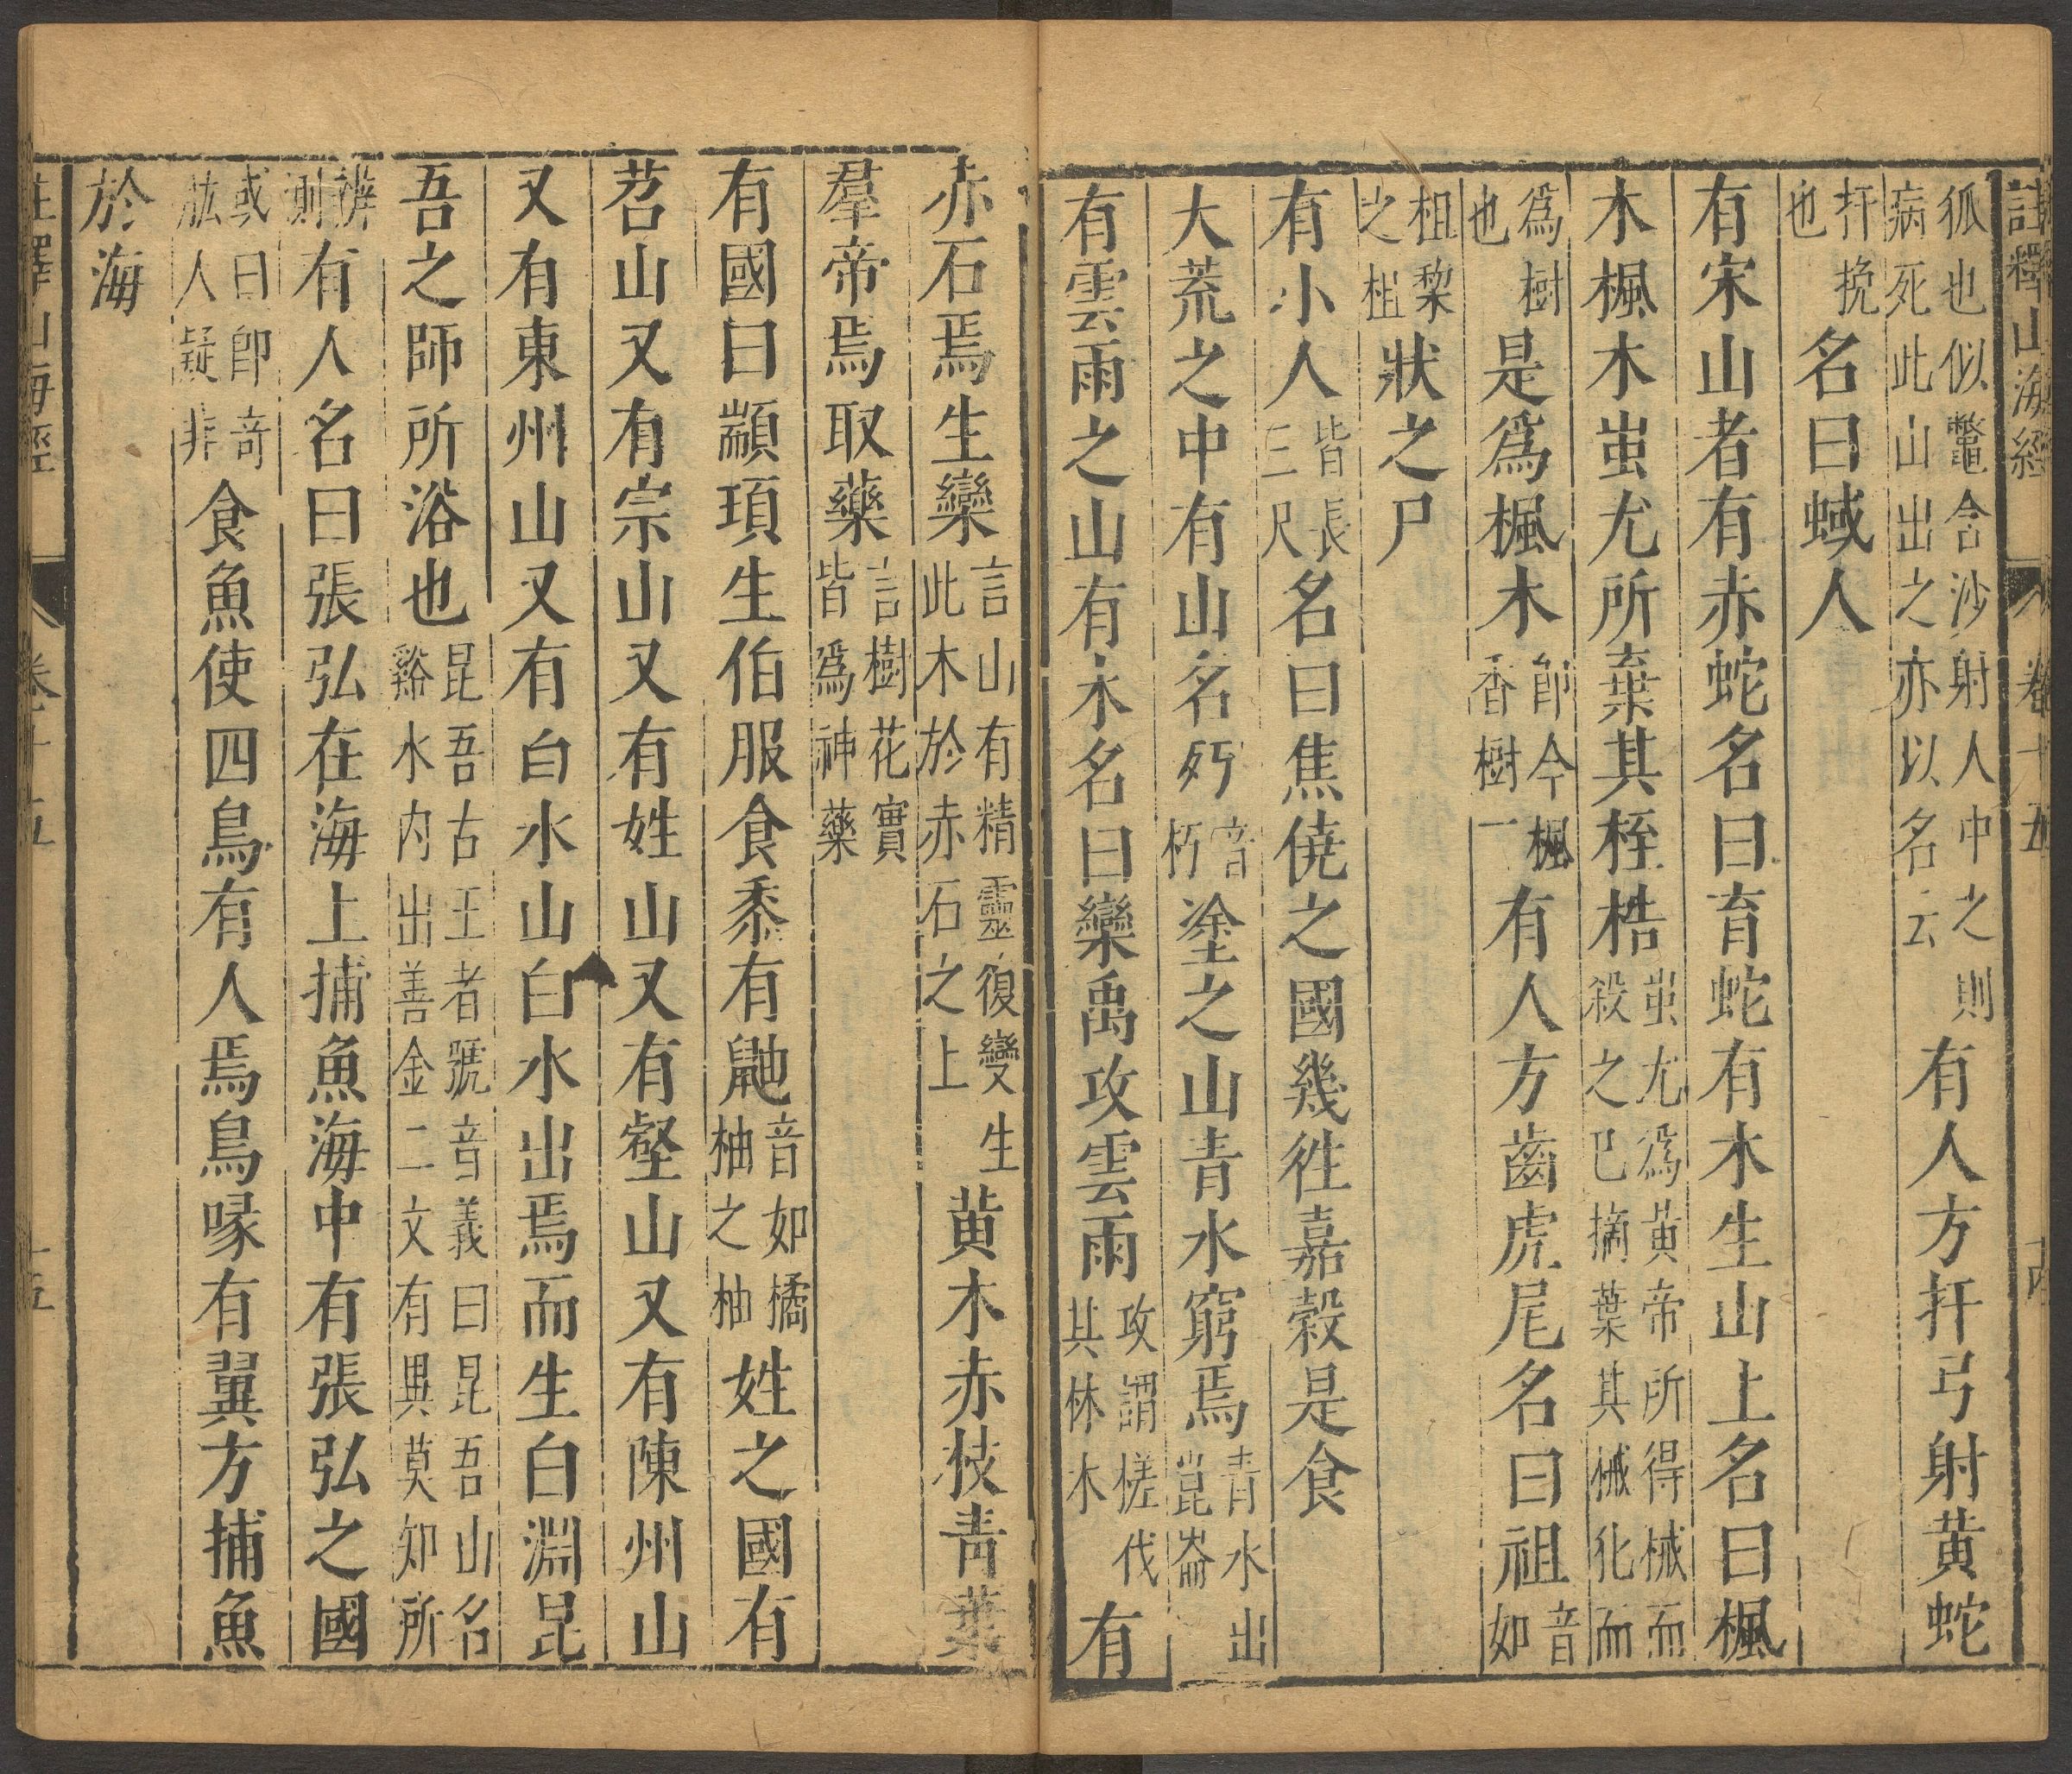 註釋山海經 卷十五 十四
狐也似鼈含沙射人中之則病死此山出之亦以名云有人方扜弓射黄蛇
扜挽也名曰蜮人
有宋山者有赤蛇名曰育蛇有木生山上名曰楓
木楓木蚩尤所棄其桎梏蚩尤爲黄帝所得械而殺之已摘葉其械化而
爲樹也是爲楓木即今楓香樹一有人方齒虎尾名曰祖音如
柤棃之柤狀之尸
有小人皆長三尺名曰焦僥之國幾徃嘉榖是食
大荒之中有山名㱙音朽塗之山青水窮焉青水出崑崙
有雲雨之山有木名曰欒禹攻雲雨攻謂槎伐其林木有
赤石焉生欒言山有精靈復變生此木於赤石之上黄木赤枝青葉
羣帝焉取藥言樹花實皆爲神藥
有國曰顓頊生伯服食黍有鼬音如橘柚之柚姓之國有
苕山又有宗山又有姓山又有壑山又有陳州山
又有東州山又有白水山白水出焉而生白淵昆
吾之師所浴也昆吾古王者號音義曰昆吾山名谿水内出善金二文有異莫知所
辨測有人名曰張弘在海上捕魚海中有張弘之國
或曰即奇肱人疑非食魚使四鳥有人焉鳥喙有翼方捕魚
於海
註釋山海經 卷十五 十五